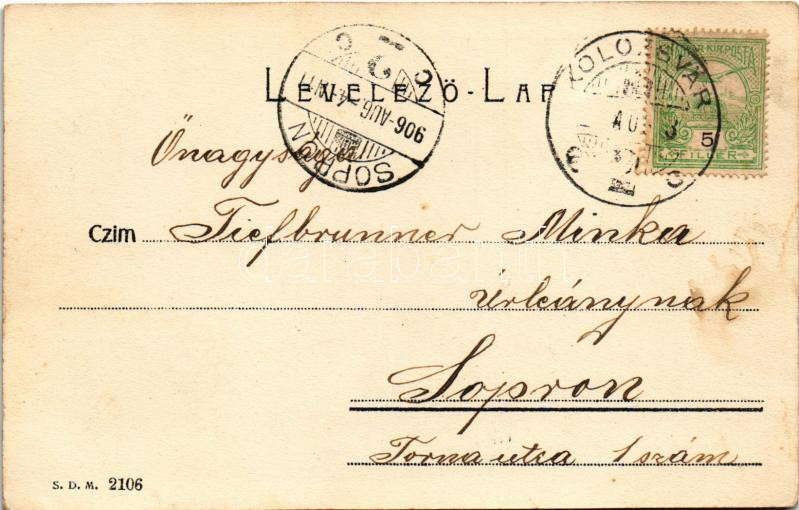 LEVELEZŐ-LAP
SOPRON
906 AUG
KOLOZSVÁR
AUG 3
MAGYAR KIR. POSTA
5
FILLÉR
Önagysága
Czim Tiefbrunner Minka
úrleánynak
Sopron
Torna utca 1 szám
S. D. M. 2106
darabanth